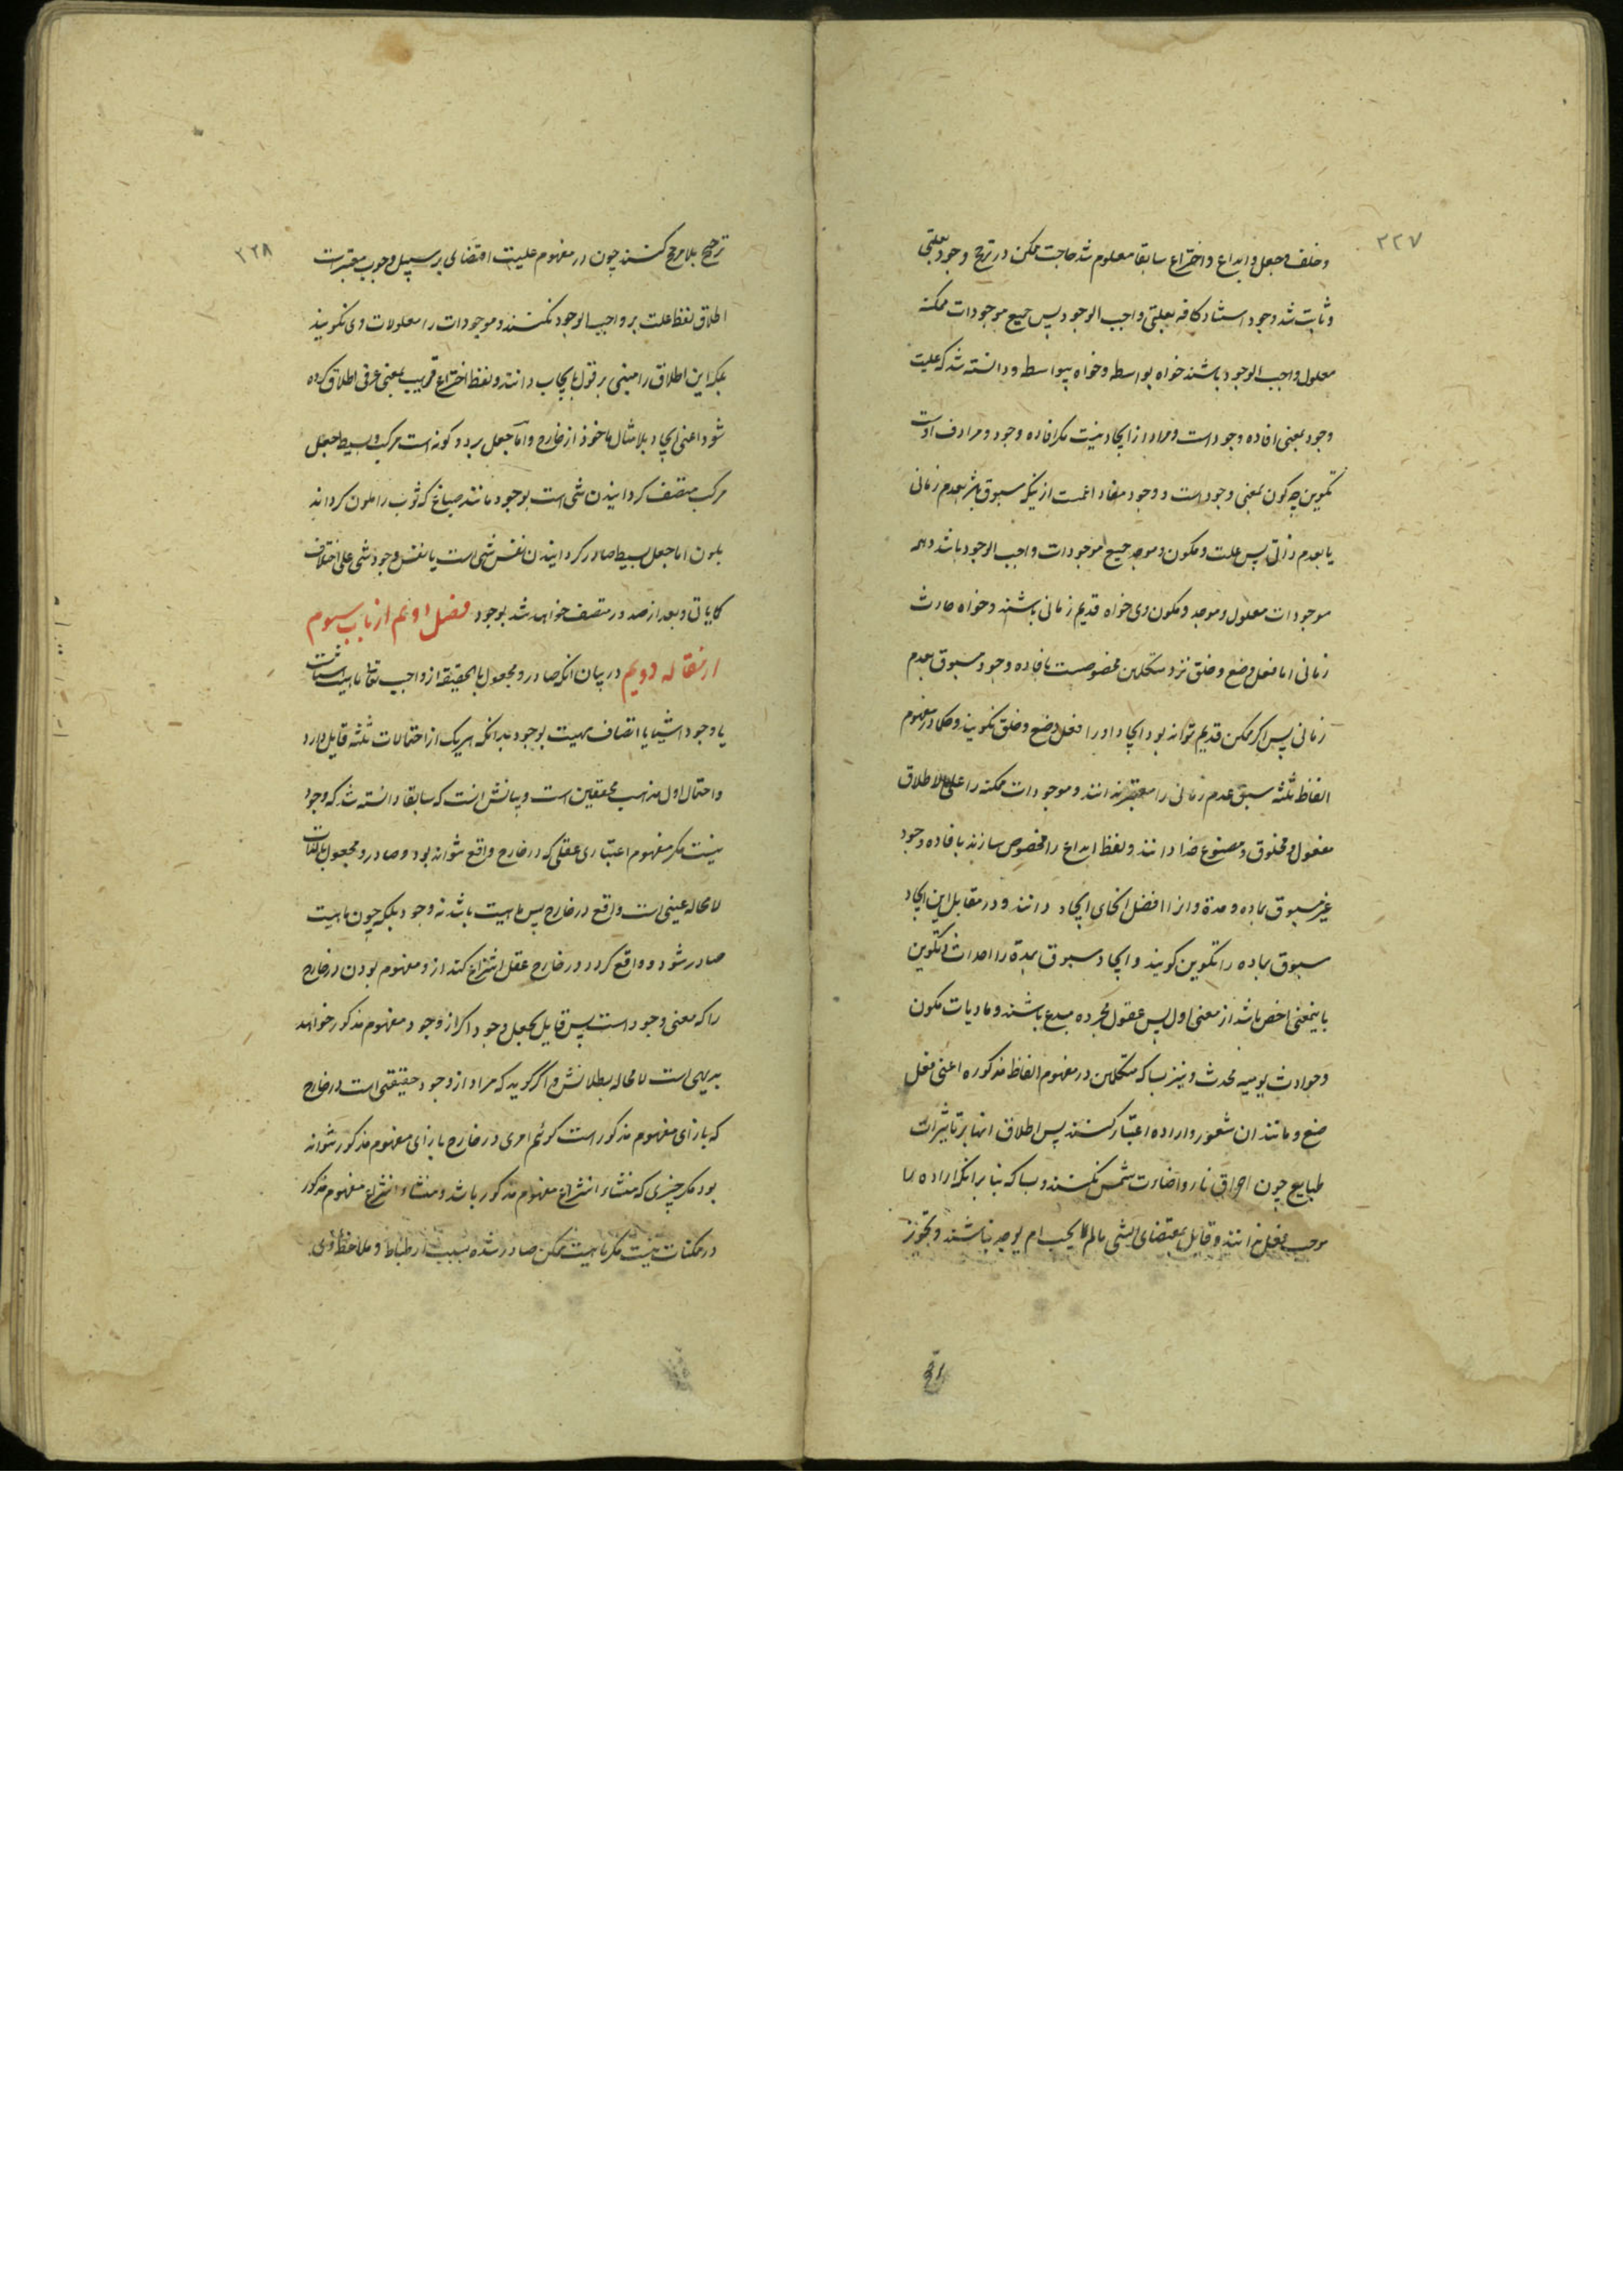 ۲۲۷
و خلف و جعل و ابداع و اختراع سابقا معلوم شد حاجت ممکن در ترجح وجود بعلتی
و ثابت شد وجود استناد کافه بعلتی واجب الوجود پس جمیع موجودات ممکنه
معلول واجب الوجود باشند خواه بواسطه و خواه بیواسطه و دانسته شد که علیت
وجود بمعنی افاده وجود است و مراد از ایجاد نیست مکر افاده وجود و مرادف اوست
تکوین چه کون بمعنی وجود است و وجود مفاد اعمست از ینکه مسبوق باشد بعدم زمانی
یا بعدم ذاتی پس علت و مکون و موجد جمیع موجودات واجب الوجود باشد و همه
موجودات معلول و موجد و مکون وی خواه قدیم زمانی باشند و خواه حادث
زمانی اما فعل و صنع و خلق نزد متکلمین مخصوصست بافاده وجود مسبوق بعدم
زمانی پس اکر ممکن قدیم تواند بود ایجاد او را فعل و صنع و خلق نکویند و حکما در مفهوم
الفاظ ثلثه سبق عدم زمانی را معتبر ندانند و موجودات ممکنه را علی الاطلاق
مفعول و مخلوق و مصنوع خدا دانند و لفظ ابداع را مخصوص سازند بافاده وجود
غیر مسبوق بماده و مدة و انرا افضل انحای ایجاد دانند و در مقابل این ایجاد
مسبوق بماده را تکوین کویند و ایجاد مسبوق بمدة را احداث و تکوین
باینمعنی اخص باشد از معنی اول پس عقول مجرده مبدع باشند و مادیات مکون
و حوادث یومیه محدث و نیز بسا که متکلمین در مفهوم الفاظ مذکوره اعنی فعل
صنع و مانند ان شعور و اراده اعتبار کنند پس اطلاق انها بر تاثیرات
طبایع چون احراق نار و اضاءت شمس نکنند و بسا که بنا برانکه اراده را
موجب فعل ندانند و قایل بمقتضای الشی مالم یجب لم یوجد نباشند و تجویز
۲۲۸
ترجیح بلا مرجح کنند چون در مفهوم علیت اقتضای بر سبیل وجوب معتبر است
اطلاق لفظ علت بر واجب الوجود نکنند و موجودات را معلولات وی نکویند
بلکه این اطلاق را مبنی بر قول بایجاب دانند و لفظ اختراع قریب بمعنی عرفی اطلاق کرده
شود اعنی ایجاد بلا مثال ماخوذ از خارج و اما جعل بر دو کونه است مرکب و بسیط جعل
مرکب متصف کردانیدن شی است بوجود مانند صباغ که ثوب را ملون کرداند
بلون اما جعل بسیط صادر کردانیدن نفس شی است یا نفس وجود شی علی اختلاف
کما یاتی و بعد از صدور متصف خواهد شد بوجود فصل دویم از باب سیوم
از مقاله دویم در بیان انکه صادر و مجعول بالحقیقه از واجب تعالی ماهیات اشیاست
یا وجود اشیا یا اتصاف مهیت بوجود بدانکه هریک از احتمالات ثلثه قایل دارد
و احتمال اول مذهب محققین است و بیانش انست که سابقا دانسته شد که وجود
نیست مکر مفهوم اعتباری عقلی که در خارج واقع نتواند بود و صادر و مجعول بالذات
لا محاله عینی است واقع در خارج پس ماهیت باشد نه وجود بلکه چون ماهیت
صادر شود و واقع کردد در خارج عقل انتزاع کند ازو مفهوم بودن در خارج
را که معنی وجود است پس قایل بجعل وجود اکر از وجود مفهوم مذکور خواهد
بدیهی است لا محاله بطلانش و اکر کوید که مراد از وجود حقیقتی است در خارج
که بازای مفهوم مذکور است کوئیم امری در خارج بازای مفهوم مذکور نتواند
بود مکر چیزی که منشاء انتزاع مفهوم مذکور باشد و منشاء انتزاع مفهوم مذکور
در ممکنات نیست مکر ماهیت ممکن صادر شده بسبب ارتباط و ملاحظه وی